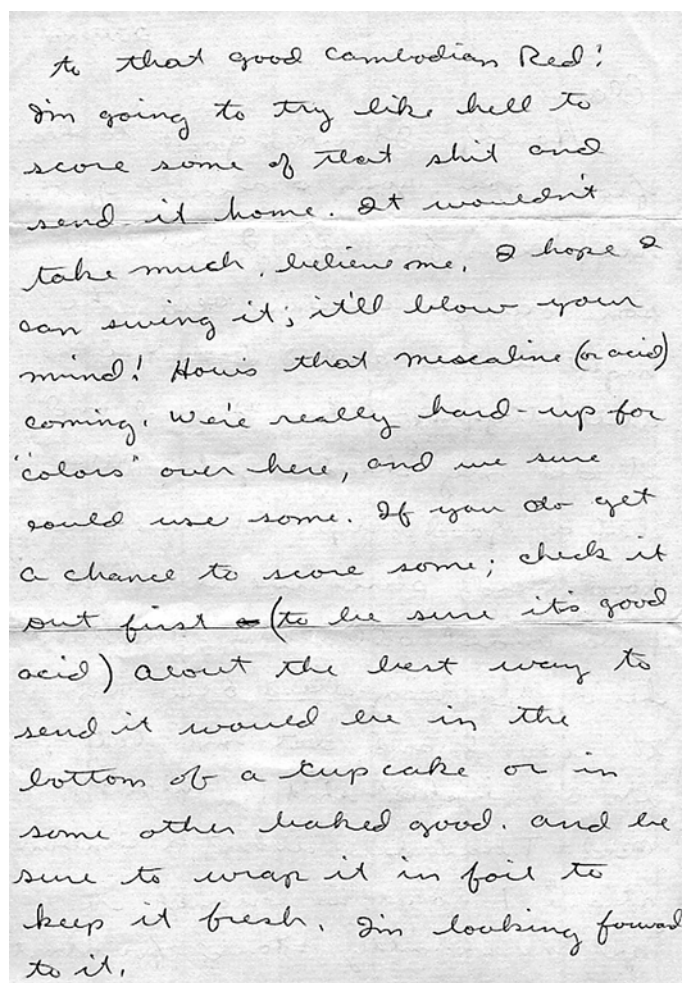 to that good Cambodian Red!
I'm going to try like hell to
score some of that shit and
send it home. It wouldn't
take much, believe me. I hope I
can swing it; it'll blow your
mind! How's that mescaline (or acid)
coming. We're really hard-up for
"colors" over here, and we sure
could use some. If you do get
a chance to score some; check it
out first (to be sure it's good
acid) About the best way to
send it would be in the
bottom of a cupcake or in
some other baked good. and be
sure to wrap it in foil to
keep it fresh. I'm looking forward
to it.